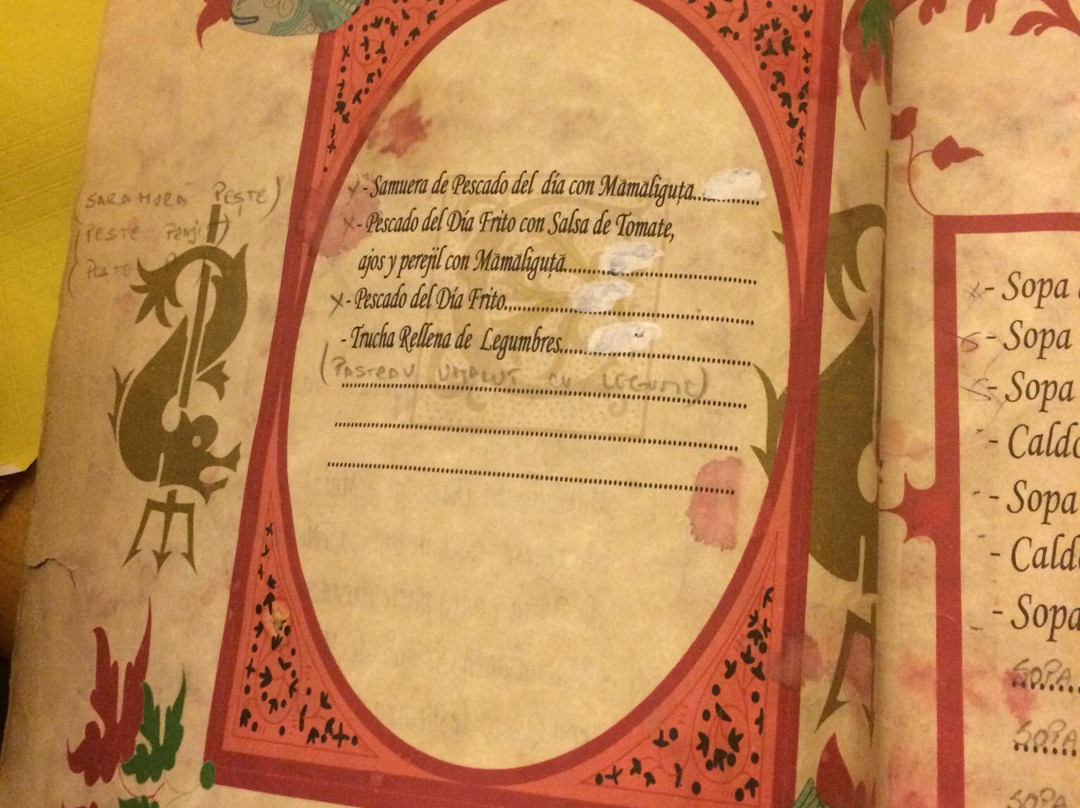 (SARAMURĂ PEȘTE)
(PEȘTE
x - Samuera de Pescado del día con Mămăliguţa..............
x - Pescado del Día Frito con Salsa de Tomate,
ajos y perejil con Mămăliguţă..............
x - Pescado del Día Frito..............
- Trucha Rellena de Legumbres..............
(PASTRAV UMPLUT CU LEGUME)
x - Sopa
- Sopa
- Sopa
- Caldo
- Sopa
- Caldo
- Sopa
SOPA
SOPA
SOPA